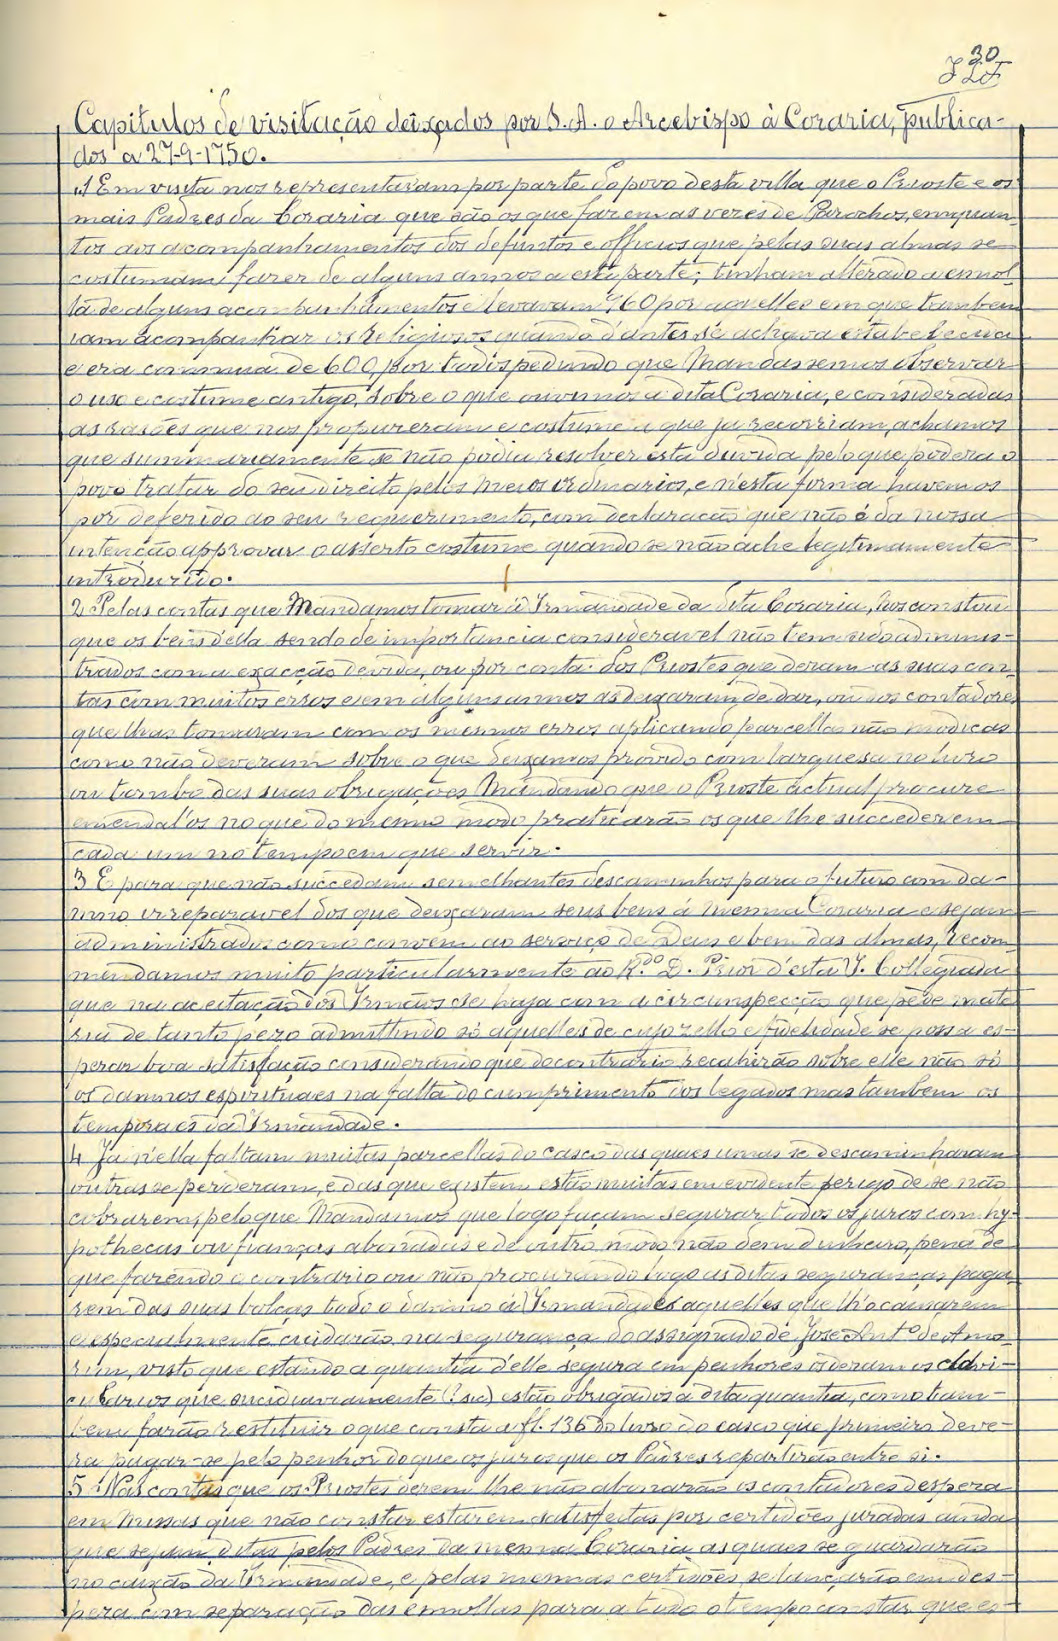 30
Capitulos de visitação deixados por S. A. o Arcebispo à Coraria, publica-
dos a 27-9-1750.
1 Em visita nos representaram por parte do povo desta villa que o Prioste e os
mais Padres da Coraria que são os que fazem as vezes de Parochos, enquan-
tos aos acompanhamentos dos defuntos e officios que pelas suas almas se
costumam fazer de alguns annos a esta parte; tinham alterado a esmol-
la de alguns acompanhamentos e levavam 960 por aquelles em que tambem
iam acompanhar os Religiosos quando d'antes se achava estabelecida
e era commua de 600 por todos pedindo que Mandassemos observar
o uso e costume antigo, sobre o que ouvimos a dita Coraria, e consideradas
as rasões que nos propuzeram e costume a que ja recorriam, achamos
que summariamente se não podia resolver esta duvida pelo que poderá o
povo tratar do seu direito pelos meios ordinarios, e n'esta forma havemos
por deferido ao seu requerimento, com declaração que não é da nossa
intenção approvar o asserto costume quando se não ache legitimamente
introduzido.
2 Pelas contas que Mandamos tomar á Irmandade da dita Coraria, nos constou
que os bens d'ella sendo de importancia consideravel não tem sido adminis-
trados com a exacção devida, ou por conta dos Priostes que deram as suas con-
tas com muitos erros e em alguns annos as deixaram de dar, ou dos contadores
que lhas tomaram com os mesmos erros aplicando parcellas não modicas
como não deveram sobre o que deixamos provido com larguesa no livro
ou tombo das suas obrigações Mandando que o Prioste actual procure
emendal'os no que do mesmo modo praticarão os que lhe succederem
cada um no tempo em que servir.
3 E para que não succedam semelhantes descaminhos para o futuro com da-
mno irreparavel dos que deixaram seus bens á mesma Coraria e sejam
administrados como convem ao serviço de Deus e bem das almas, recom-
mendamos muito particularmente ao R.do D. Prior d'esta I. Collegiada
que na aceitação dos Irmãos se haja com a circunspecção que pede mate-
ria de tanto pezo admittindo só aquelles de cujo zello e fidelidade se possa es-
perar boa satisfação considerando que do contrario recahirão sobre elle não só
os damnos espirituaes na falta do cumprimento dos legados mas tambem os
temporaes da Irmandade.
4 Já n'ella faltam muitas parcellas do casco das quaes umas se descaminharam
outras se perderam, e das que existem estão muitas em evidente perigo de se não
cobrarem, pelo que Mandamos que logo façam segurar todos os juros com hy-
pothecas ou fianças abonadas e de outro modo não dem dinheiro, pena de
que fazendo o contrario ou não procurando logo as ditas seguranças, paga-
rem das suas bolças todo o damno á Irmandade aquelles que lh'o causarem
e especialmente cuidarão na segurança do assignado de José Ant.o de Amo-
rim, visto que estando a quantia d'elle segura em penhores o deram os
que sucidiariamente (? sic) estão obrigados a dita quantia, como tam-
bem farão restituir o que consta a fl. 136 do livro do casco que primeiro deve-
rá pagar-se pelo penhor do que os juros que os Padres repartirão entre si.
5 Nas contas que os Priostes derem lhe não abonarão os contadores despeza
em missas que não constar estarem satisfeitas por certidões juradas ainda
que sejam ditas pelos Padres da mesma Coraria as quaes se guardarão
no caixão da Irmandade, e pelas mesmas certidões se lançarão em des-
peza com separação das esmollas para a todo o tempo constar que es-